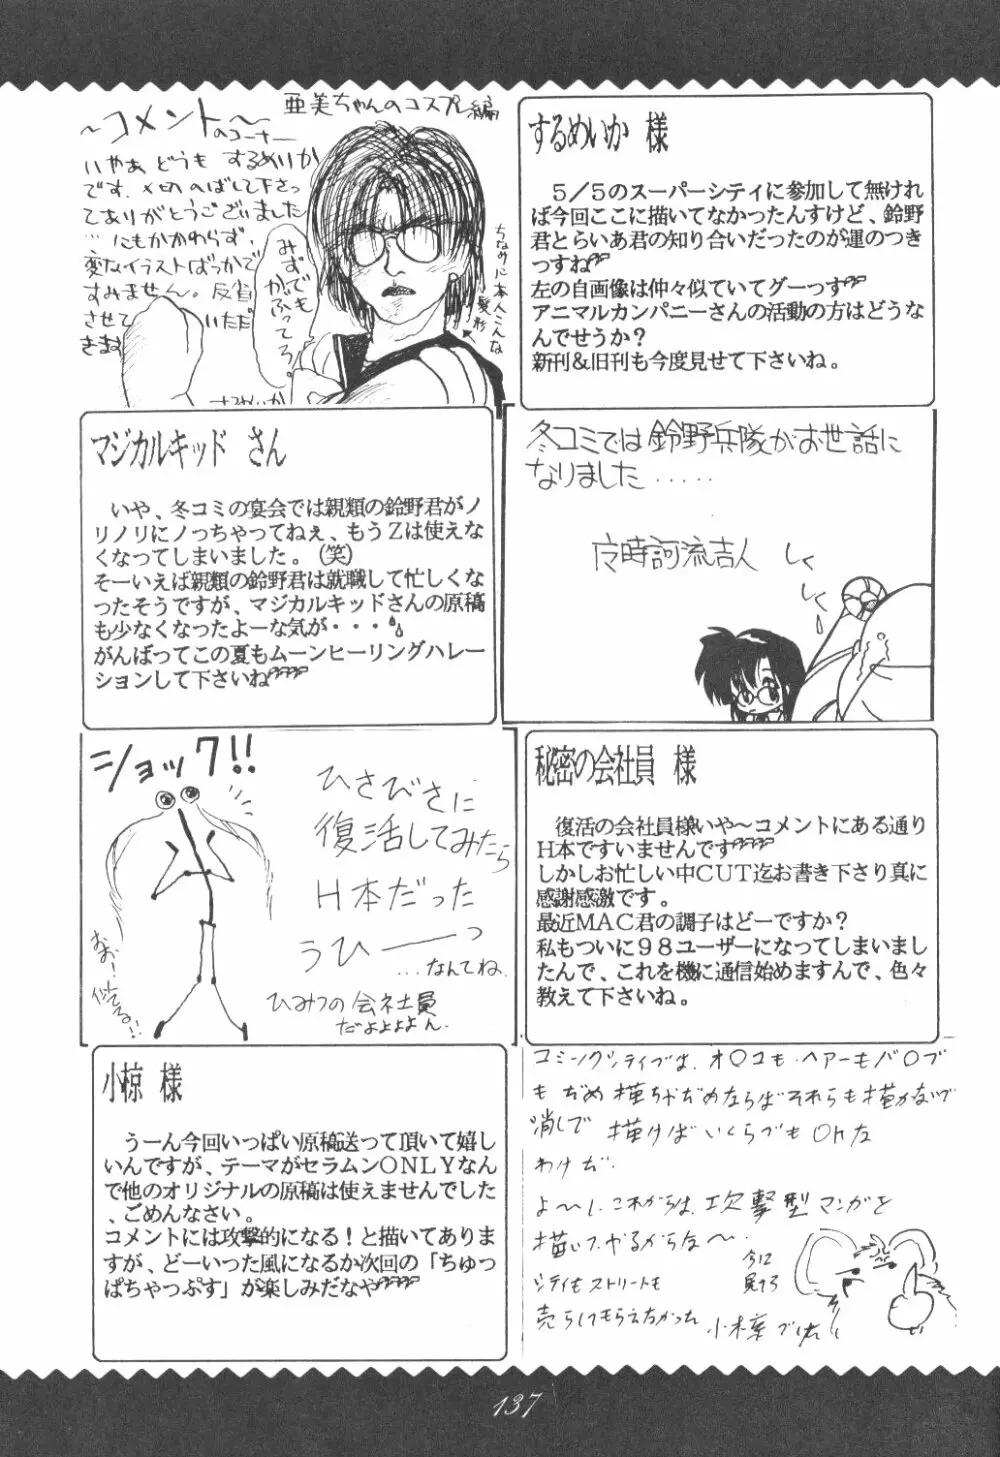 亜美ちゃんのコスプレ編
～コメント～
のコーナー
いやあ どうも するめいか
です。〆切のばして下さっ
てありがとうございました
…にもかかわらず、
変なイラストばっかで
すみません。反省
させて いただ
きます
みずでも
かぶってろ。
ちなみに本人こんな
髪形
するめいか 様
5／5のスーパーシティに参加して無けれ
ば今回ここに描いてなかったんすけど、鈴野
君とらいあ君の知り合いだったのが運のつき
っすね
左の自画像は仲々似ていてグーっす
アニマルカンパニーさんの活動の方はどうな
んでせうか？
新刊＆旧刊も今度見せて下さいね。
マジカルキッド さん
いや、冬コミの宴会では親類の鈴野君がノ
リノリにノっちゃってねぇ、もうＺは使えな
くなってしまいました。（笑）
そーいえば親類の鈴野君は就職して忙しくな
ったそうですが、マジカルキッドさんの原稿
も少なくなったよーな気が・・・
がんばってこの夏もムーンヒーリングハレー
ションして下さいね
冬コミでは鈴野兵隊がお世話に
なりました・・・・・
しく
しく
ショック!!
ひさびさに
復活してみたら
Ｈ本だった
うひ――っ
…なんてね。
ひみつの会社員
だよよよよん。
おお！
似てる!!
秘密の会社員 様
復活の会社員様いや～コメントにある通り
Ｈ本ですいませんです
しかしお忙しい中ＣＵＴ迄お書き下さり真に
感謝感激です。
最近ＭＡＣ君の調子はどーですか？
私もついに９８ユーザーになってしまいまし
たんで、これを機に通信始めますんで、色々
教えて下さいね。
小椋 様
うーん今回いっぱい原稿送って頂いて嬉し
いんですが、テーマがセラムンＯＮＬＹなん
で他のオリジナルの原稿は使えませんでした
、ごめんなさい。
コメントには攻撃的になる！と描いてありま
すが、どーいった風になるか次回の「ちゅっ
ぱちゃっぷす」が楽しみだなや
コミックシティブは、オ〇コも・ヘアーもバ〇ブ
も だめ 描ちゃだめならばそれらも描かないで
消しで 描けば いくらでもOKな
わけだ。
よ～し、これからは、攻撃型マンガを
描いてやるからな～
今に
見てろ
シティもストリートも
売らしてもらえなかった
小椋でした
137